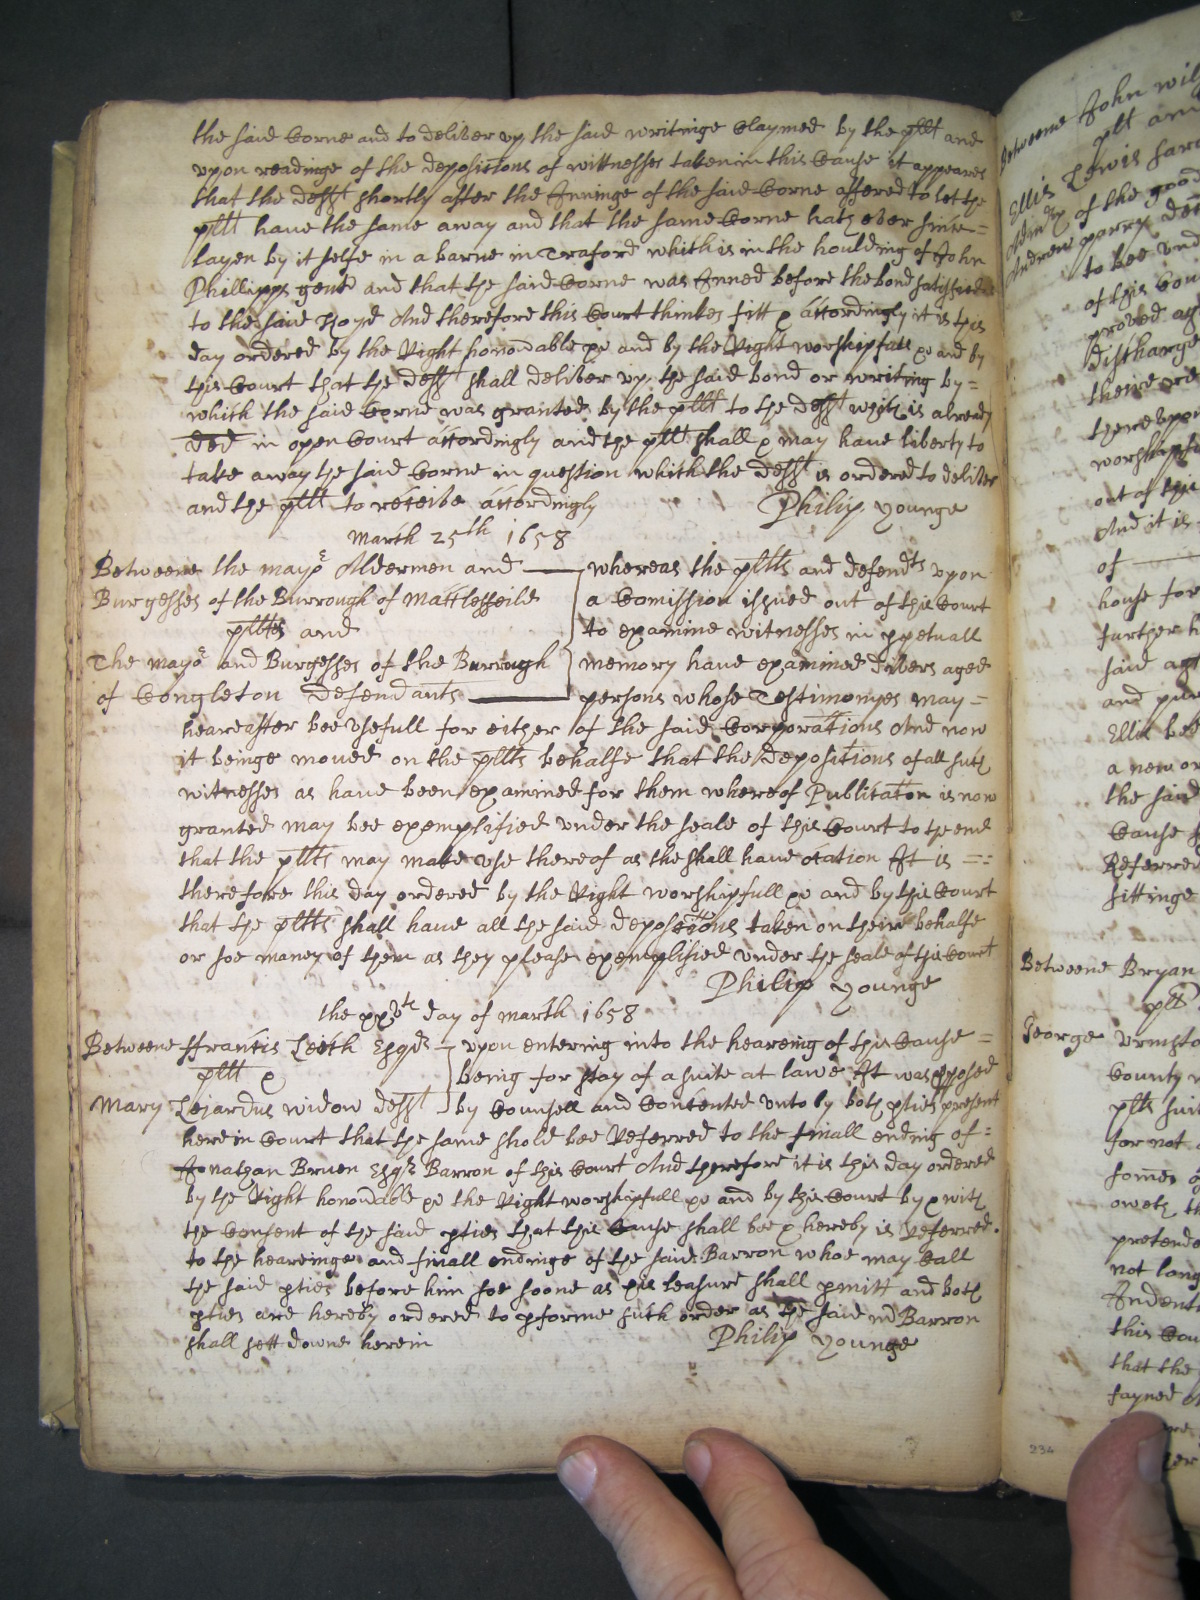 the said Corne and to deliver up the said writinge Claymed by the pltt and
upon readinge of the depositions of wittnesses taken in this Cause it appeares
that the defft shortly after the Inninge of the said Corne offered to let the
pltt have the same away and that the same Corne hath ever since =
layen by it selfe in a barne in Traford which is in the houlding of John
Phillipps gent and that the said Corne was Inned before the bond satisfied
to the said Lloyd And therefore this Court thinkes fitt & accordingly it is this
day ordered by the Right honorable &c and by the Right worshipfull &c and by
this Court that the defft shall deliver up the said bond or writing by =
which the said Corne was granted by the pltt to the defft which is already
ded in open Court accordingly and the pltt shall & may have liberty to
take away the said Corne in question which the defft is ordered to deliver
and the pltt to receive accordingly
Philip Younge
March 25th 1658
Betweene the mayor Aldermen and
Burgesses of the Burrough of Macclesfeild
pltts and
The mayor and Burgesses of the Burrough
of Congleton Defendants
whereas the pltts and defendts upon
a Comission issued out of this Court
to examine witnesses in ppetuall
memory have examined divers aged
persons whose Testimonyes may =
heareafter bee usefull for either of the said Corporations And now
it beinge moved on the pltts behalfe that the depositions of all such
witnesses as have been examined for them whereof Publication is now
granted may bee exemplified under the seale of this Court to the end
that the pltts may make use thereof as the shall have ocation It is =
therefore this day ordered by the Right worshipfull &c and by this Court
that the pltts shall have all the said depositions taken on theire behalfe
or soe maney of them as they please exemplified under the seale of this Court
Philip Younge
the xxvth day of march 1658
Betweene ffrancis Leech Esqr
pltt &
Mary widow defft
upon entering into the heareing of this Cause =
being for stay of a suite at lawe It was pposed
by Counsell and Consented unto by both pties present
here in Court that the same shold bee Referred to the finall ending of =
Jonathan Bruen Esqr Barron of this Court And therefore it is this day ordered
by the Right honorable &c the Right worshipfull &c and by this Court by & with
the Consent of the said pties that this Cause shall bee & hereby is Referred
to the heareinge and finall endinge of the said Barron whoe may Call
the said pties before him soe soone as his leasure shall pmitt and both
pties are hereby ordered to pforme such order as the said mr Barron
shall sett downe herein
Philip Younge
Betweene John
pltt and
Ellis Lewis
of the good
Andrew parry
to bee
of this
proved
discharge
theire
thereupon
out of the
And it is
of
house for
further
said
and
Ellis
a new or
the said
Cause
Referred
sittinge
Betweene Bryan
pltt
George
County
pltts
for not
oweth
pretende
not long
this
that the
234